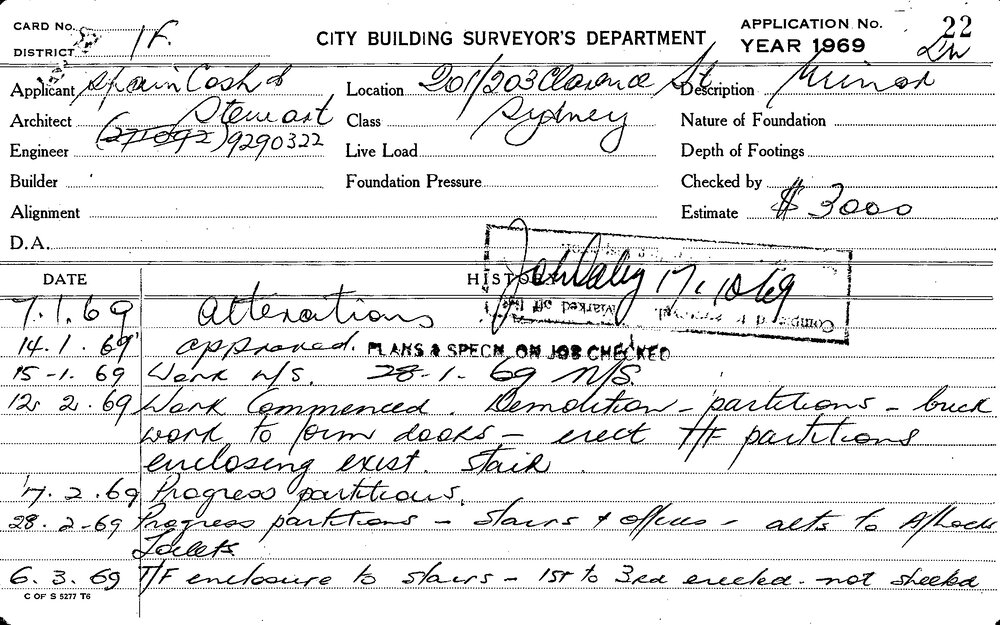 CARD No. 1F.
DISTRICT
CITY BUILDING SURVEYOR'S DEPARTMENT
APPLICATION No. 22
YEAR 1969
Applicant Spain Cosh &
Stewart
Location 201/203 Clarence St
Sydney
Description Minor
Architect
Class
Nature of Foundation
(271092) 9290322
Engineer
Live Load
Depth of Footings
Builder
Foundation Pressure
Checked by
Alignment
Estimate $ 3000
D.A.
DATE
HISTORY
17.10.69
7.1.69 alterations
14.1.69 approved. PLANS & SPECN. ON JOB CHECKED
15-1.69 Work n/s. 28-1.69 N/S.
12. 2.69 Work Commenced. Demolition - partitions - brick
work to form doors - erect T/F partitions
enclosing exist. stair.
17.2.69 Progress partitions.
28.2-69 Progress partitions - stairs & offices - alts to
Toilets
6.3.69 T/F enclosure to stairs - 1st to 3rd erected - not sheeted
C OF S 5277 T6